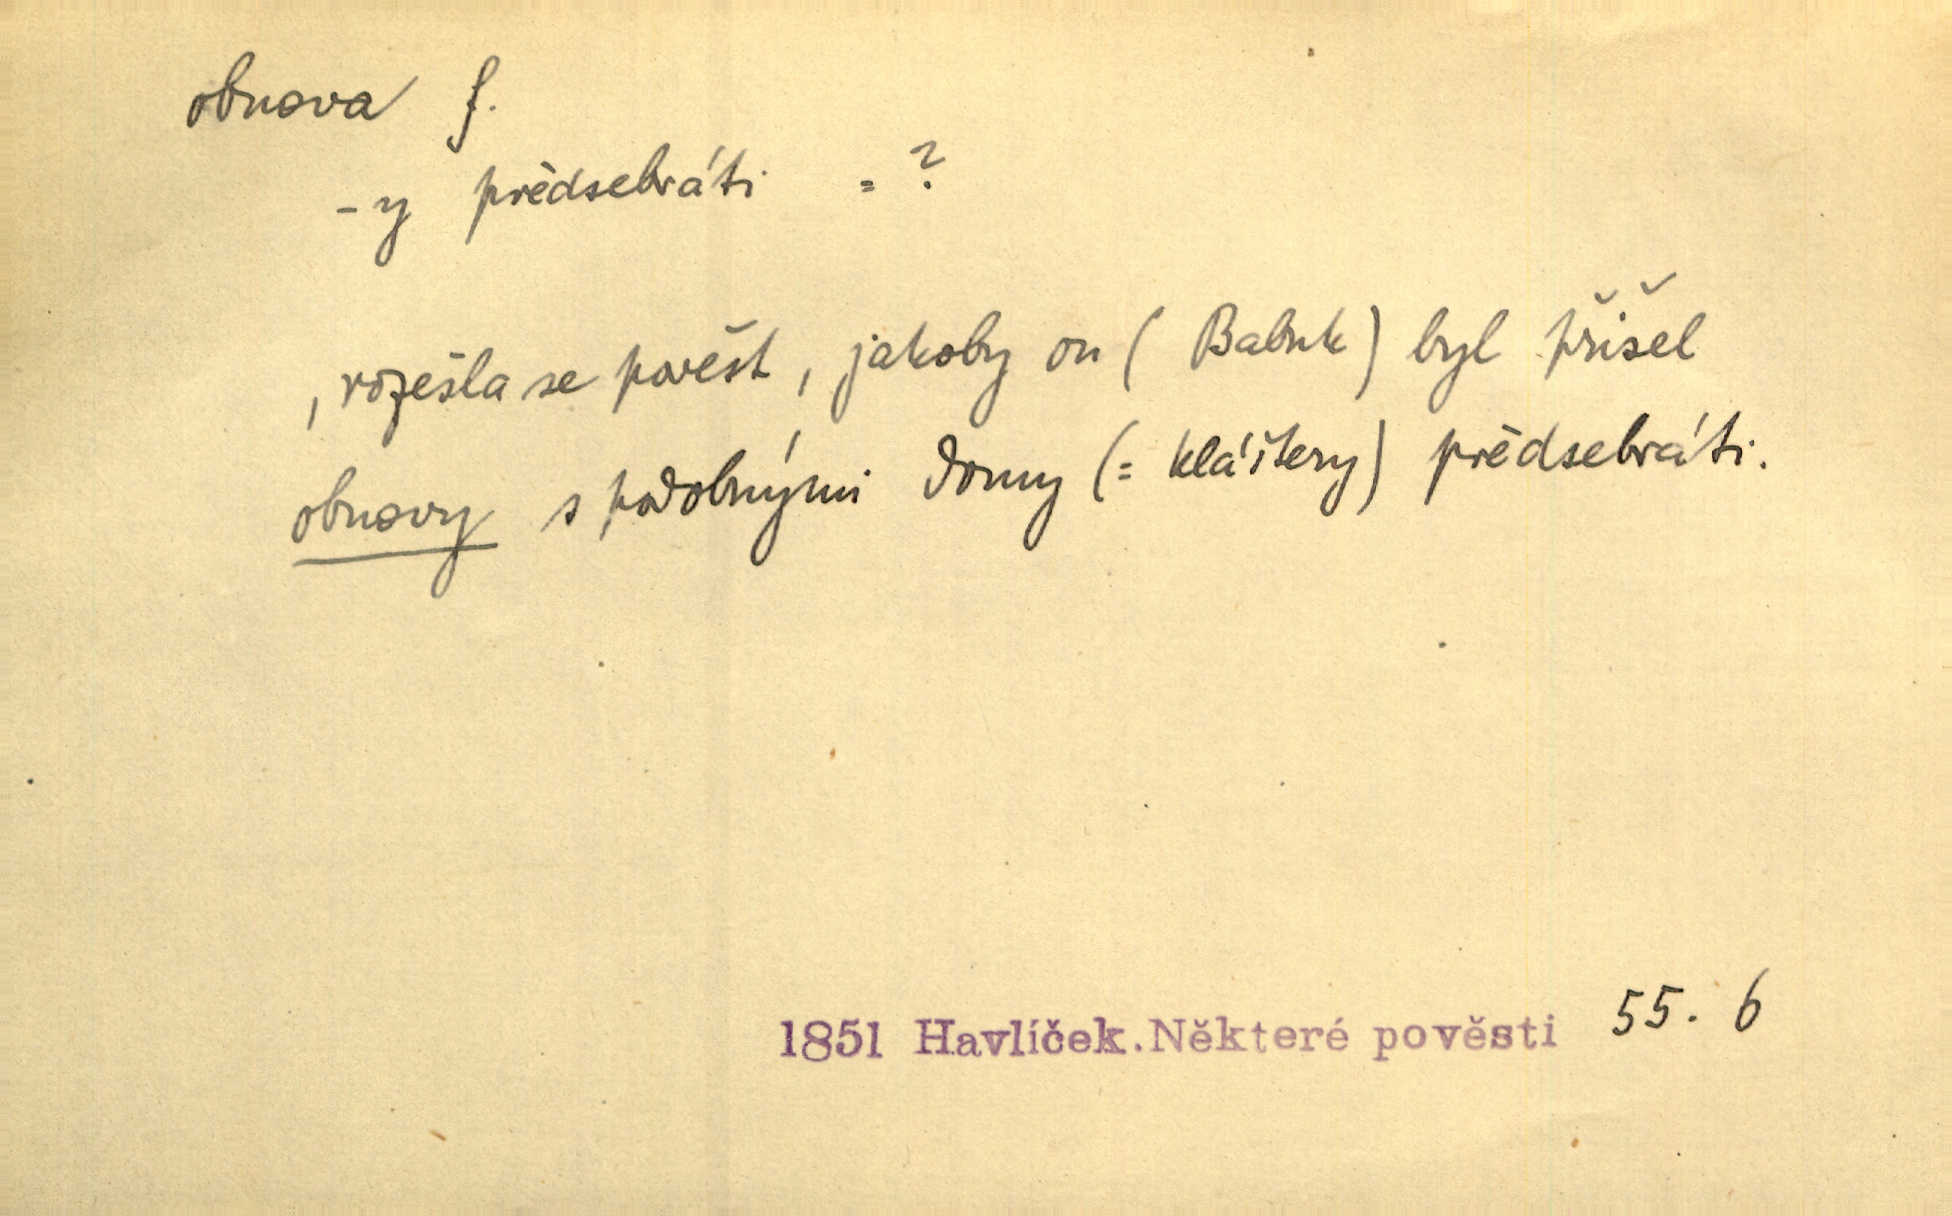 obnova f.
-y předsebráti = ?
, rozešla se pověst, jakoby on (Babuk) byl přišel
obnovy s podobnými domy (= kláštery) předsebráti.
1851 Havlíček. Některé pověsti 55. 6